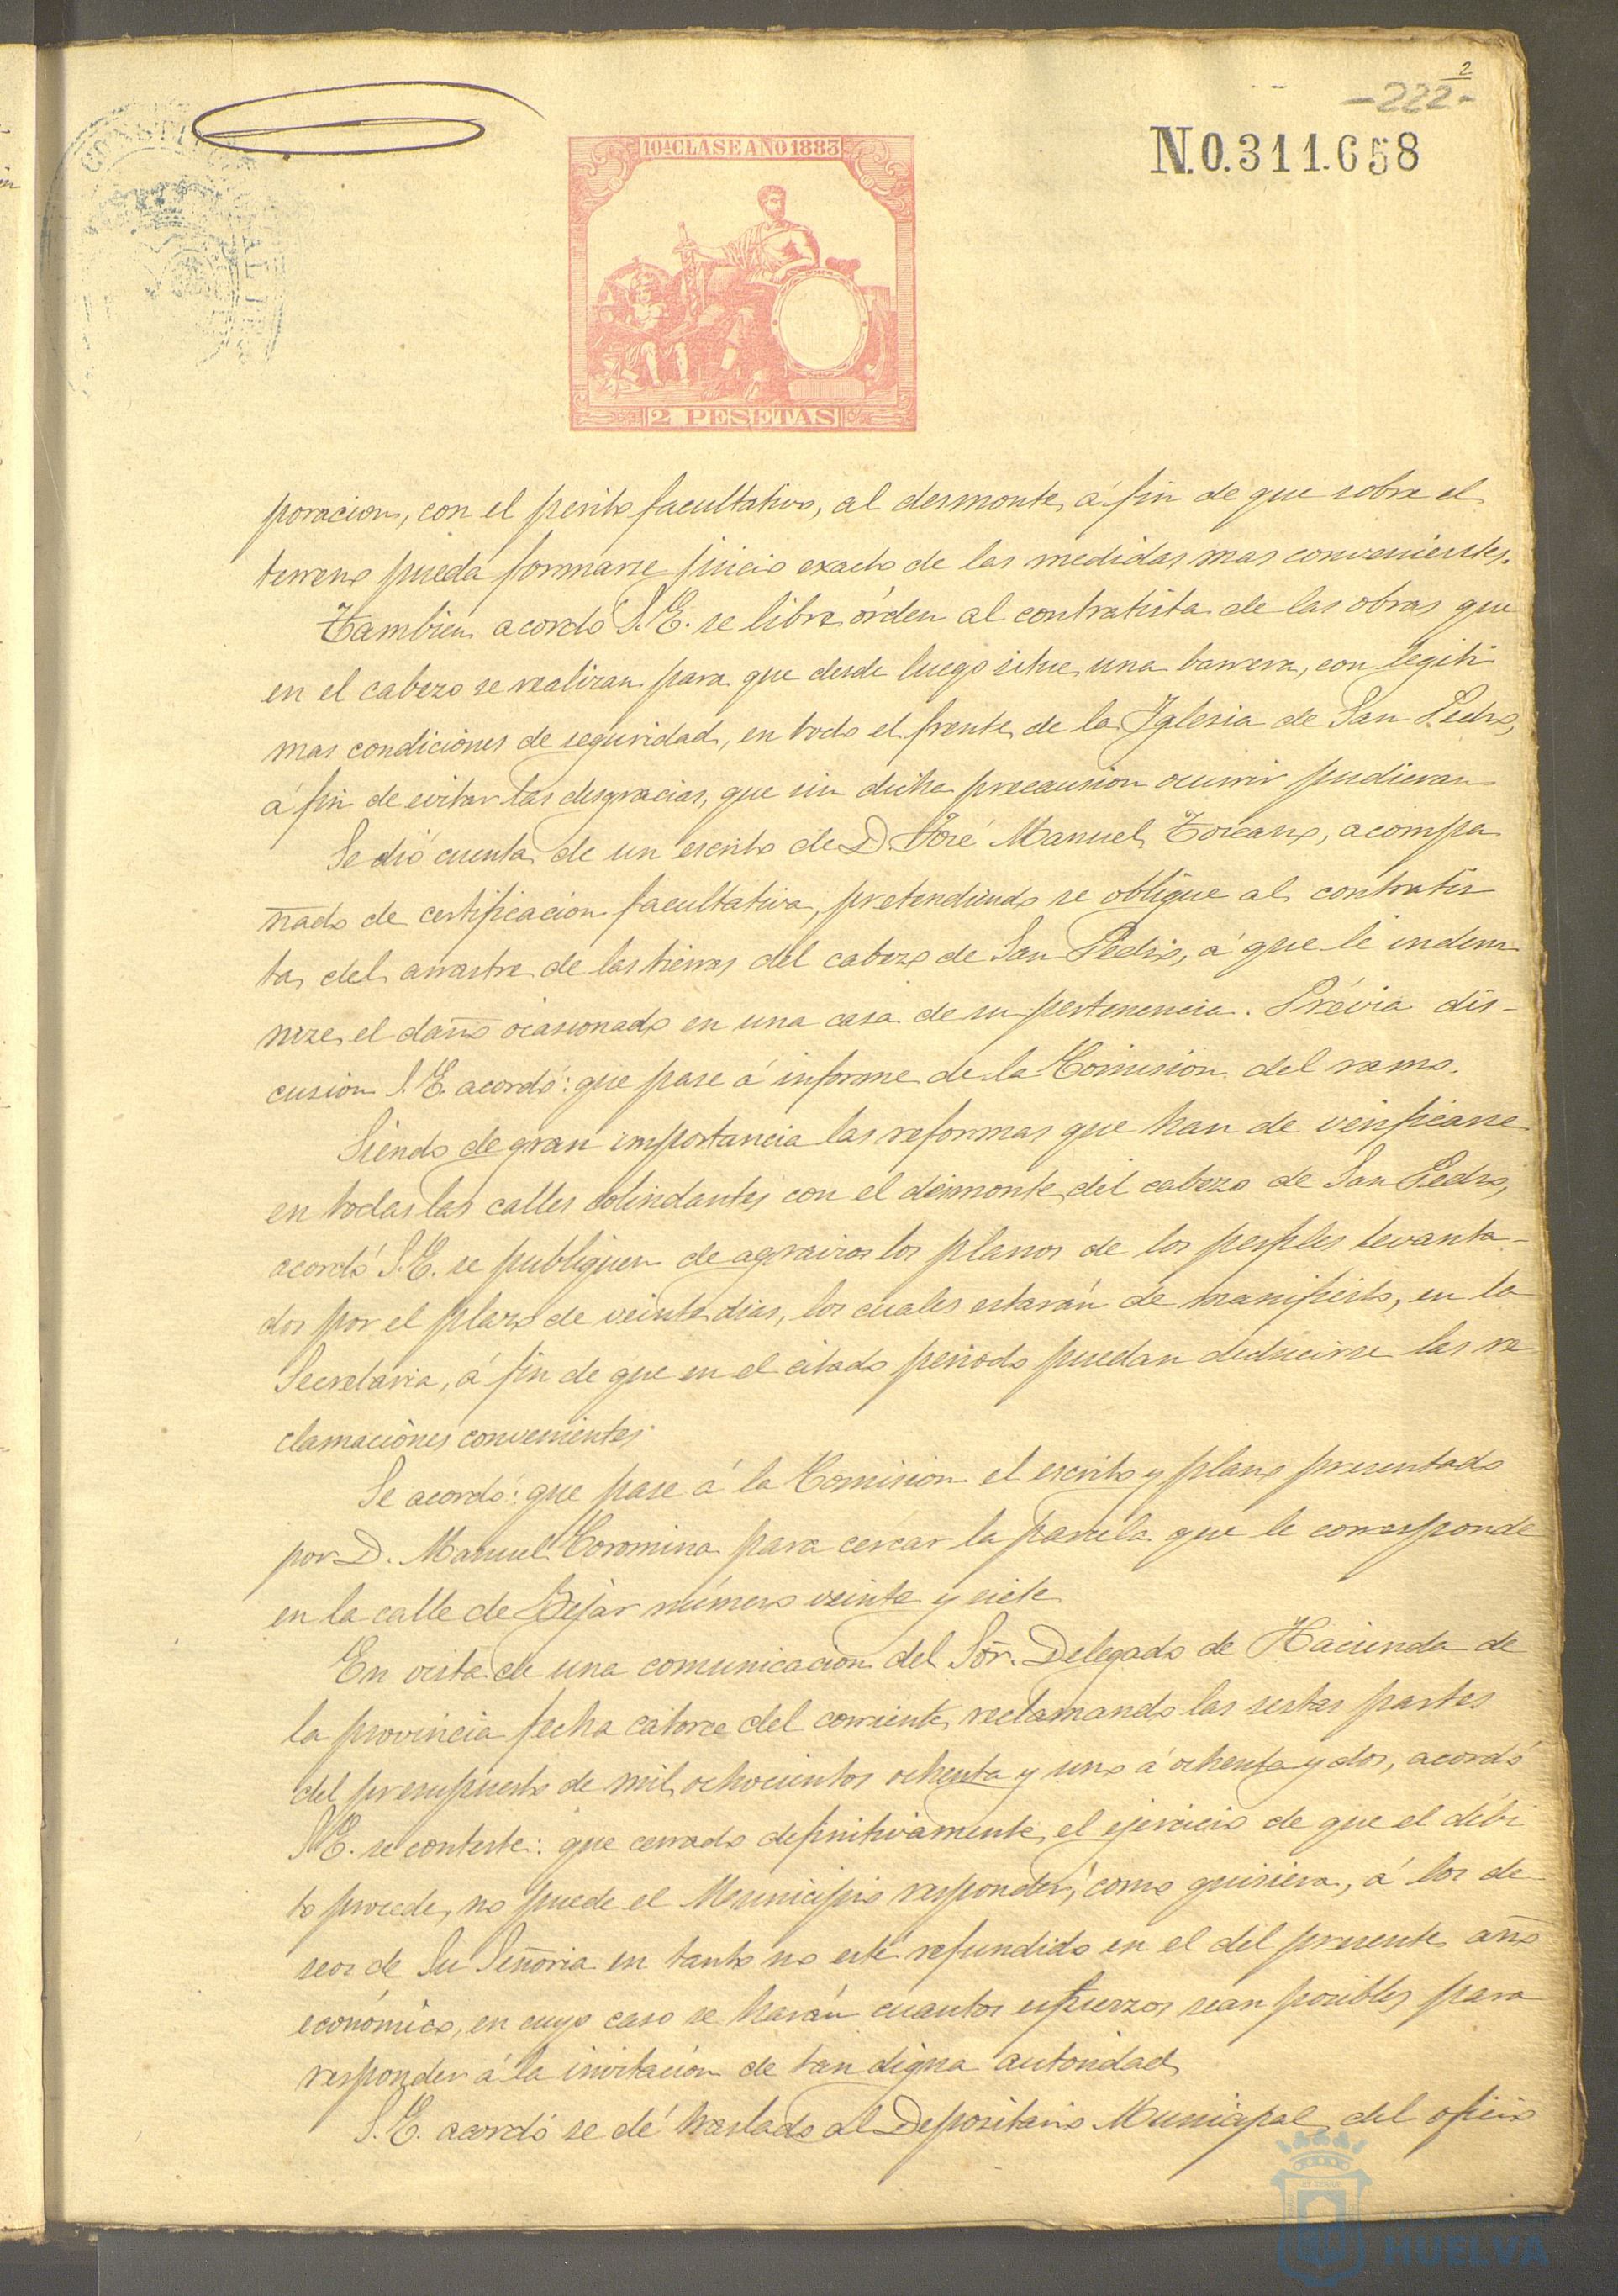 2
-222-
N.0.311.658
CONSTI
10ª CLASE AÑO 1883
2 PESETAS
poracion, con el perito facultativo, al desmonte, á fin de que sobre el
terreno pueda formarse juicio exacto de las medidas mas convenientes.
Tambien acordó S.E. se libre órden al contratista de las obras que
en el cabezo se realizan para que desde luego situe una barrera, con legiti
mas condiciónes de seguridad, en todo el frente de la Iglesia de San Pedro,
á fin de evitar las desgracias, que sin dicha precausion ocurrir pudieran
Se dió cuenta de un escrito de D. José Manuel Toscano, acompa
ñado de certificación facultativa, pretendiendo se obligue al contratis
ta del arrastre de las tierras del cabezo de San Pedro, á que le indem
nize el daño ocasionado en una casa de su pertenencia. Prévia dis-
cusion S.E. acordó: que pase á informe de la Comision del ramo.
Siendo de gran importancia las reformas que han de verificarse
en todas las calles colindantes con el desmonte del cabezo de San Pedro,
acordó S.E. se publiquen de agravios los planos de los perfiles levanta-
dos por el plazo de veinte dias, los cuales estarán de manifiesto, en la
Secretaria, á fin de que en el citado periodo puedan deducirse las re
clamaciónes convenientes.
Se acordó: que pase á la Comision el escrito y plano presentado
por D. Manuel Coromina para cercar la parcela que le corresponde
en la calle de Bejar número veinte y siete
En vista de una comunicación del Sõr. Delegado de Hacienda de
la provincia fecha catorce del corriente, reclamando las sestas partes
del presupuesto de mil ochocientos ochenta y uno á ochenta y dos, acordó
S.E. se conteste: que cerrado definitivamente el ejercicio de que el débi
to procede, no puede el Municipio responder, como quisiera, á los de
seos de Su Señoria en tanto no esté refundido en el del presente año
económico, en cuyo caso se harán cuantos esfuerzos sean posibles para
responder á la invitación de tan digna autoridad
S.E. acordó se dé traslado al Depositario Municipal del oficio
HUELVA